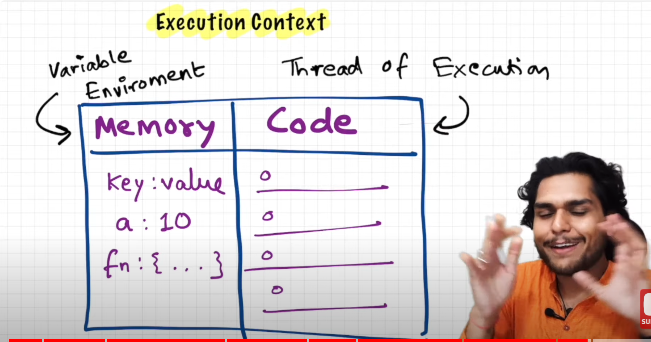 Execution Context
Variable
Enviroment
Thread of Execution
Memory
Code
key : value
a : 10
fn : { . . . }
SU